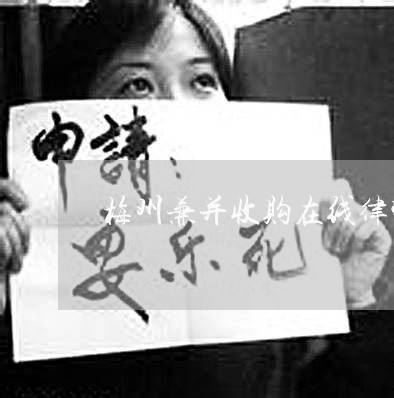 申請：
梅州兼并收购在线律
安乐死